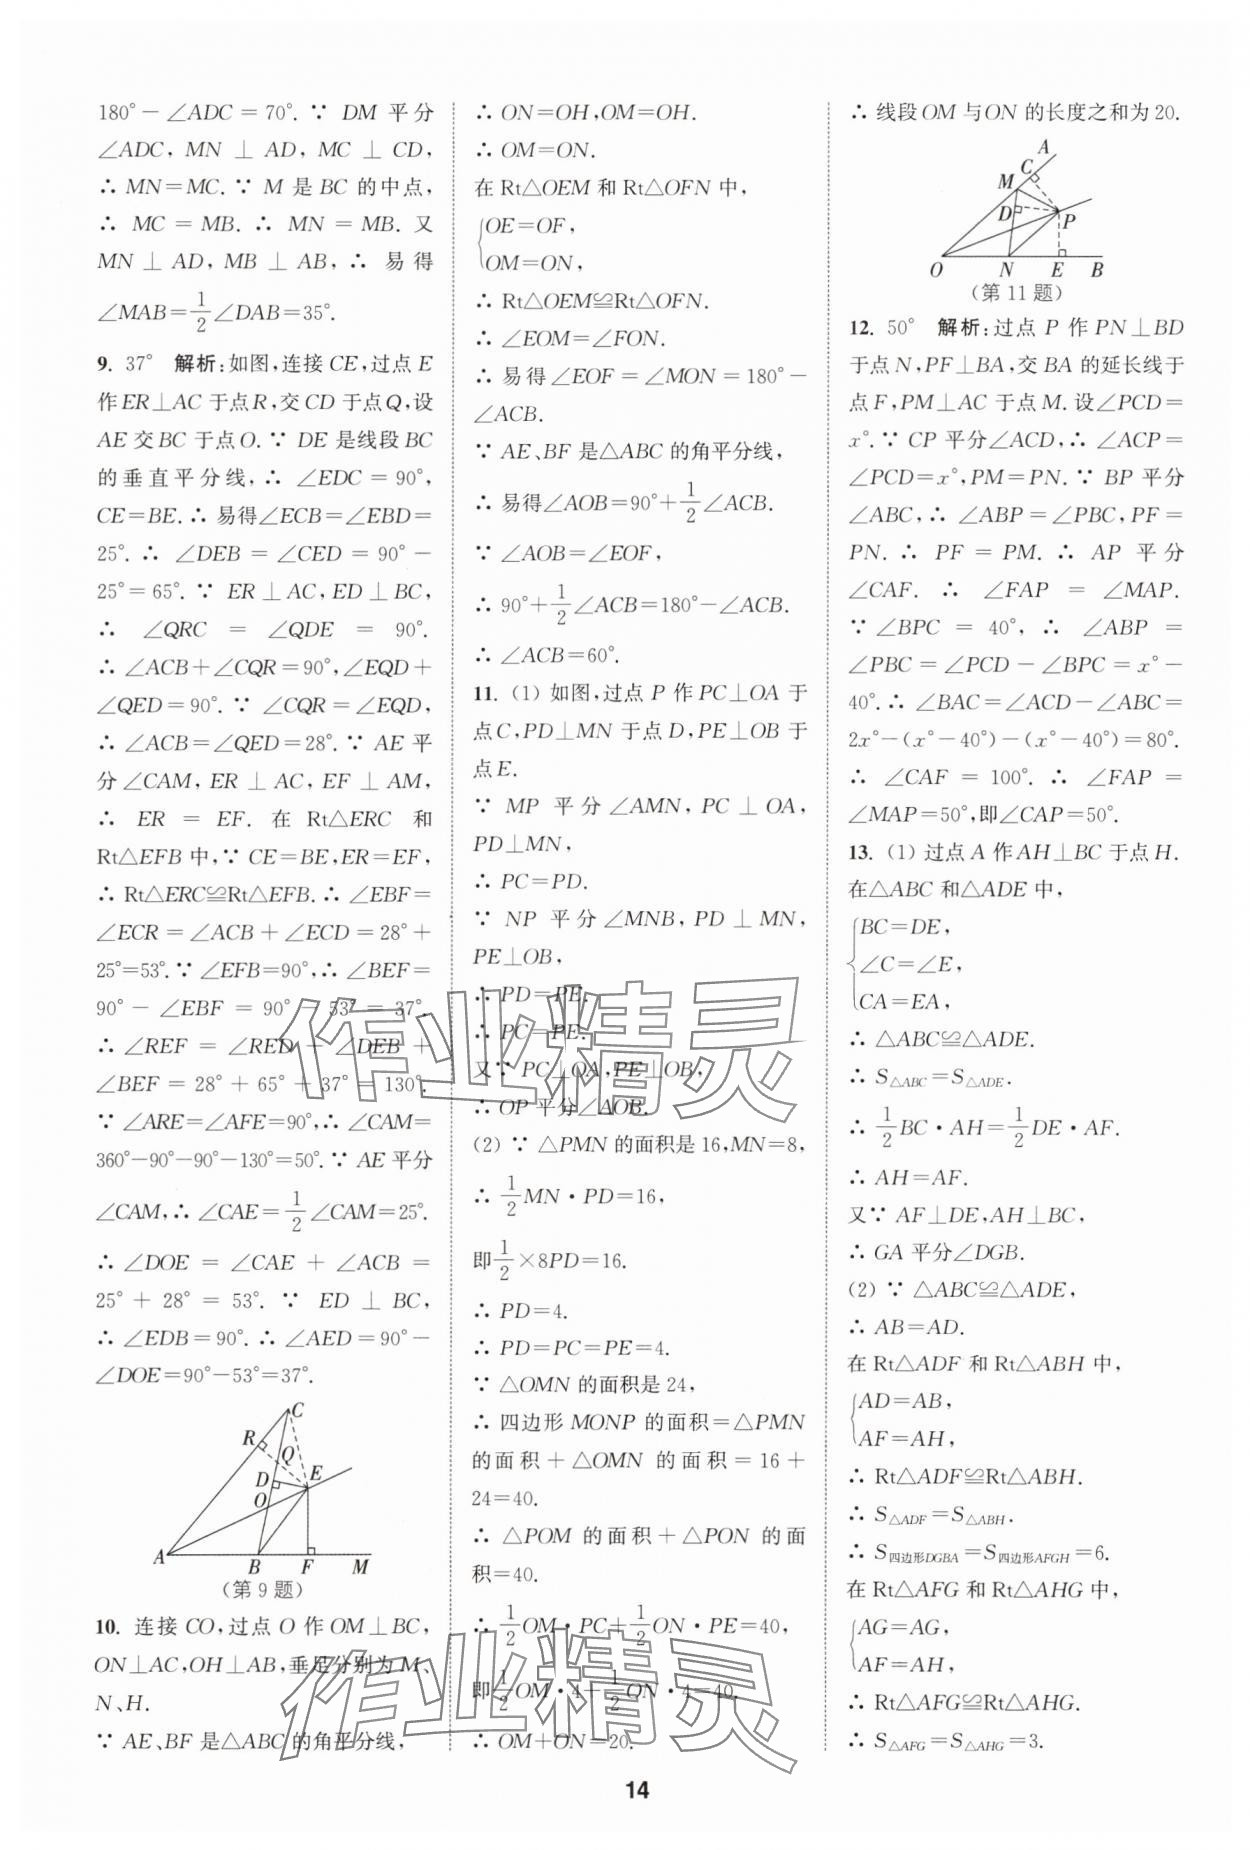 180°－∠ADC＝70°. ∵ DM 平分
∠ADC，MN ⊥ AD，MC ⊥ CD，
∴ MN＝MC. ∵ M 是 BC 的中点，
∴ MC ＝ MB. ∴ MN ＝ MB. 又
MN ⊥ AD，MB ⊥ AB，∴ 易得
∠MAB＝1/2∠DAB＝35°.
9. 37° 解析：如图，连接 CE，过点 E
作ER⊥AC 于点R，交 CD 于点Q，设
AE 交BC 于点O. ∵ DE 是线段 BC
的垂直平分线，∴ ∠EDC ＝ 90°，
CE＝BE. ∴ 易得∠ECB＝∠EBD＝
25°. ∴ ∠DEB ＝ ∠CED ＝ 90° －
25°＝65°. ∵ ER ⊥ AC，ED ⊥ BC，
∴ ∠QRC ＝ ∠QDE ＝ 90°.
∴ ∠ACB＋∠CQR＝90°，∠EQD＋
∠QED＝90°. ∵ ∠CQR＝∠EQD，
∴ ∠ACB＝∠QED＝28°. ∵ AE 平
分∠CAM，ER ⊥ AC，EF ⊥ AM，
∴ ER ＝ EF. 在 Rt△ERC 和
Rt△EFB 中，∵ CE＝BE，ER＝EF，
∴ Rt△ERC≌Rt△EFB. ∴ ∠EBF＝
∠ECR＝∠ACB＋∠ECD＝28°＋
25°＝53°. ∵ ∠EFB＝90°，∴ ∠BEF＝
90° － ∠EBF ＝ 90° － 53° ＝ 37°.
∴ ∠REF ＝ ∠RED ＋ ∠DEB ＋
∠BEF ＝ 28° ＋ 65° ＋ 37° ＝ 130°.
∵ ∠ARE＝∠AFE＝90°，∴ ∠CAM＝
360°－90°－90°－130°＝50°. ∵ AE 平分
∠CAM，∴ ∠CAE＝1/2∠CAM＝25°.
∴ ∠DOE ＝ ∠CAE ＋ ∠ACB ＝
25° ＋ 28° ＝ 53°. ∵ ED ⊥ BC，
∴ ∠EDB＝90°. ∴ ∠AED＝90°－
∠DOE＝90°－53°＝37°.
C
R
Q
D
E
O
A
B
F
M
（第 9 题）
10. 连接 CO，过点 O 作 OM⊥BC，
ON⊥AC，OH⊥AB，垂足分别为 M、
N、H.
∵ AE、BF 是△ABC 的角平分线，
∴ ON＝OH，OM＝OH.
∴ OM＝ON.
在 Rt△OEM 和 Rt△OFN 中，
OE＝OF，
OM＝ON，
∴ Rt△OEM≌Rt△OFN.
∴ ∠EOM＝∠FON.
∴ 易得∠EOF＝∠MON＝180°－
∠ACB.
∵ AE、BF 是△ABC 的角平分线，
∴ 易得∠AOB＝90°＋1/2∠ACB.
∵ ∠AOB＝∠EOF，
∴ 90°＋1/2∠ACB＝180°－∠ACB.
∴ ∠ACB＝60°.
11. （1）如图，过点 P 作 PC⊥OA 于
点C，PD⊥MN 于点 D，PE⊥OB 于
点 E.
∵ MP 平分∠AMN，PC ⊥ OA，
PD⊥MN，
∴ PC＝PD.
∵ NP 平分∠MNB，PD ⊥ MN，
PE⊥OB，
∴ PD＝PE.
∴ PC＝PE.
又∵ PC⊥OA，PE⊥OB，
∴ OP 平分∠AOB.
（2）∵ △PMN 的面积是 16，MN＝8，
∴ 1/2MN·PD＝16，
即1/2×8PD＝16.
∴ PD＝4.
∴ PD＝PC＝PE＝4.
∵ △OMN 的面积是 24，
∴ 四边形 MONP 的面积＝△PMN
的面积＋△OMN 的面积＝16＋
24＝40.
∴ △POM 的面积＋△PON 的面
积＝40.
∴ 1/2OM·PC＋1/2ON·PE＝40，
即1/2OM·4＋1/2ON·4＝40.
∴ OM＋ON＝20.
∴ 线段OM 与ON 的长度之和为 20.
A
C
M
D
P
O
N
E
B
（第 11 题）
12. 50° 解析：过点 P 作 PN⊥BD
于点 N，PF⊥BA，交 BA 的延长线于
点 F，PM⊥AC 于点 M. 设∠PCD＝
x°. ∵ CP 平分∠ACD，∴ ∠ACP＝
∠PCD＝x°，PM＝PN. ∵ BP 平分
∠ABC，∴ ∠ABP＝∠PBC，PF＝
PN. ∴ PF ＝ PM. ∴ AP 平分
∠CAF. ∴ ∠FAP ＝ ∠MAP.
∵ ∠BPC ＝ 40°，∴ ∠ABP ＝
∠PBC＝∠PCD－∠BPC＝x°－
40°. ∴ ∠BAC＝∠ACD－∠ABC＝
2x°－（x°－40°）－（x°－40°）＝80°.
∴ ∠CAF ＝ 100°. ∴ ∠FAP ＝
∠MAP＝50°，即∠CAP＝50°.
13. （1）过点 A 作AH⊥BC 于点 H.
在△ABC 和△ADE 中，
BC＝DE，
∠C＝∠E，
CA＝EA，
∴ △ABC≌△ADE.
∴ S△ABC＝S△ADE.
∴ 1/2BC·AH＝1/2DE·AF.
∴ AH＝AF.
又∵ AF⊥DE，AH⊥BC，
∴ GA 平分∠DGB.
（2）∵ △ABC≌△ADE，
∴ AB＝AD.
在 Rt△ADF 和 Rt△ABH 中，
AD＝AB，
AF＝AH，
∴ Rt△ADF≌Rt△ABH.
∴ S△ADF＝S△ABH.
∴ S四边形DGBA＝S四边形AFGH＝6.
在 Rt△AFG 和 Rt△AHG 中，
AG＝AG，
AF＝AH，
∴ Rt△AFG≌Rt△AHG.
∴ S△AFG＝S△AHG＝3.
作业精灵
作业精灵
14